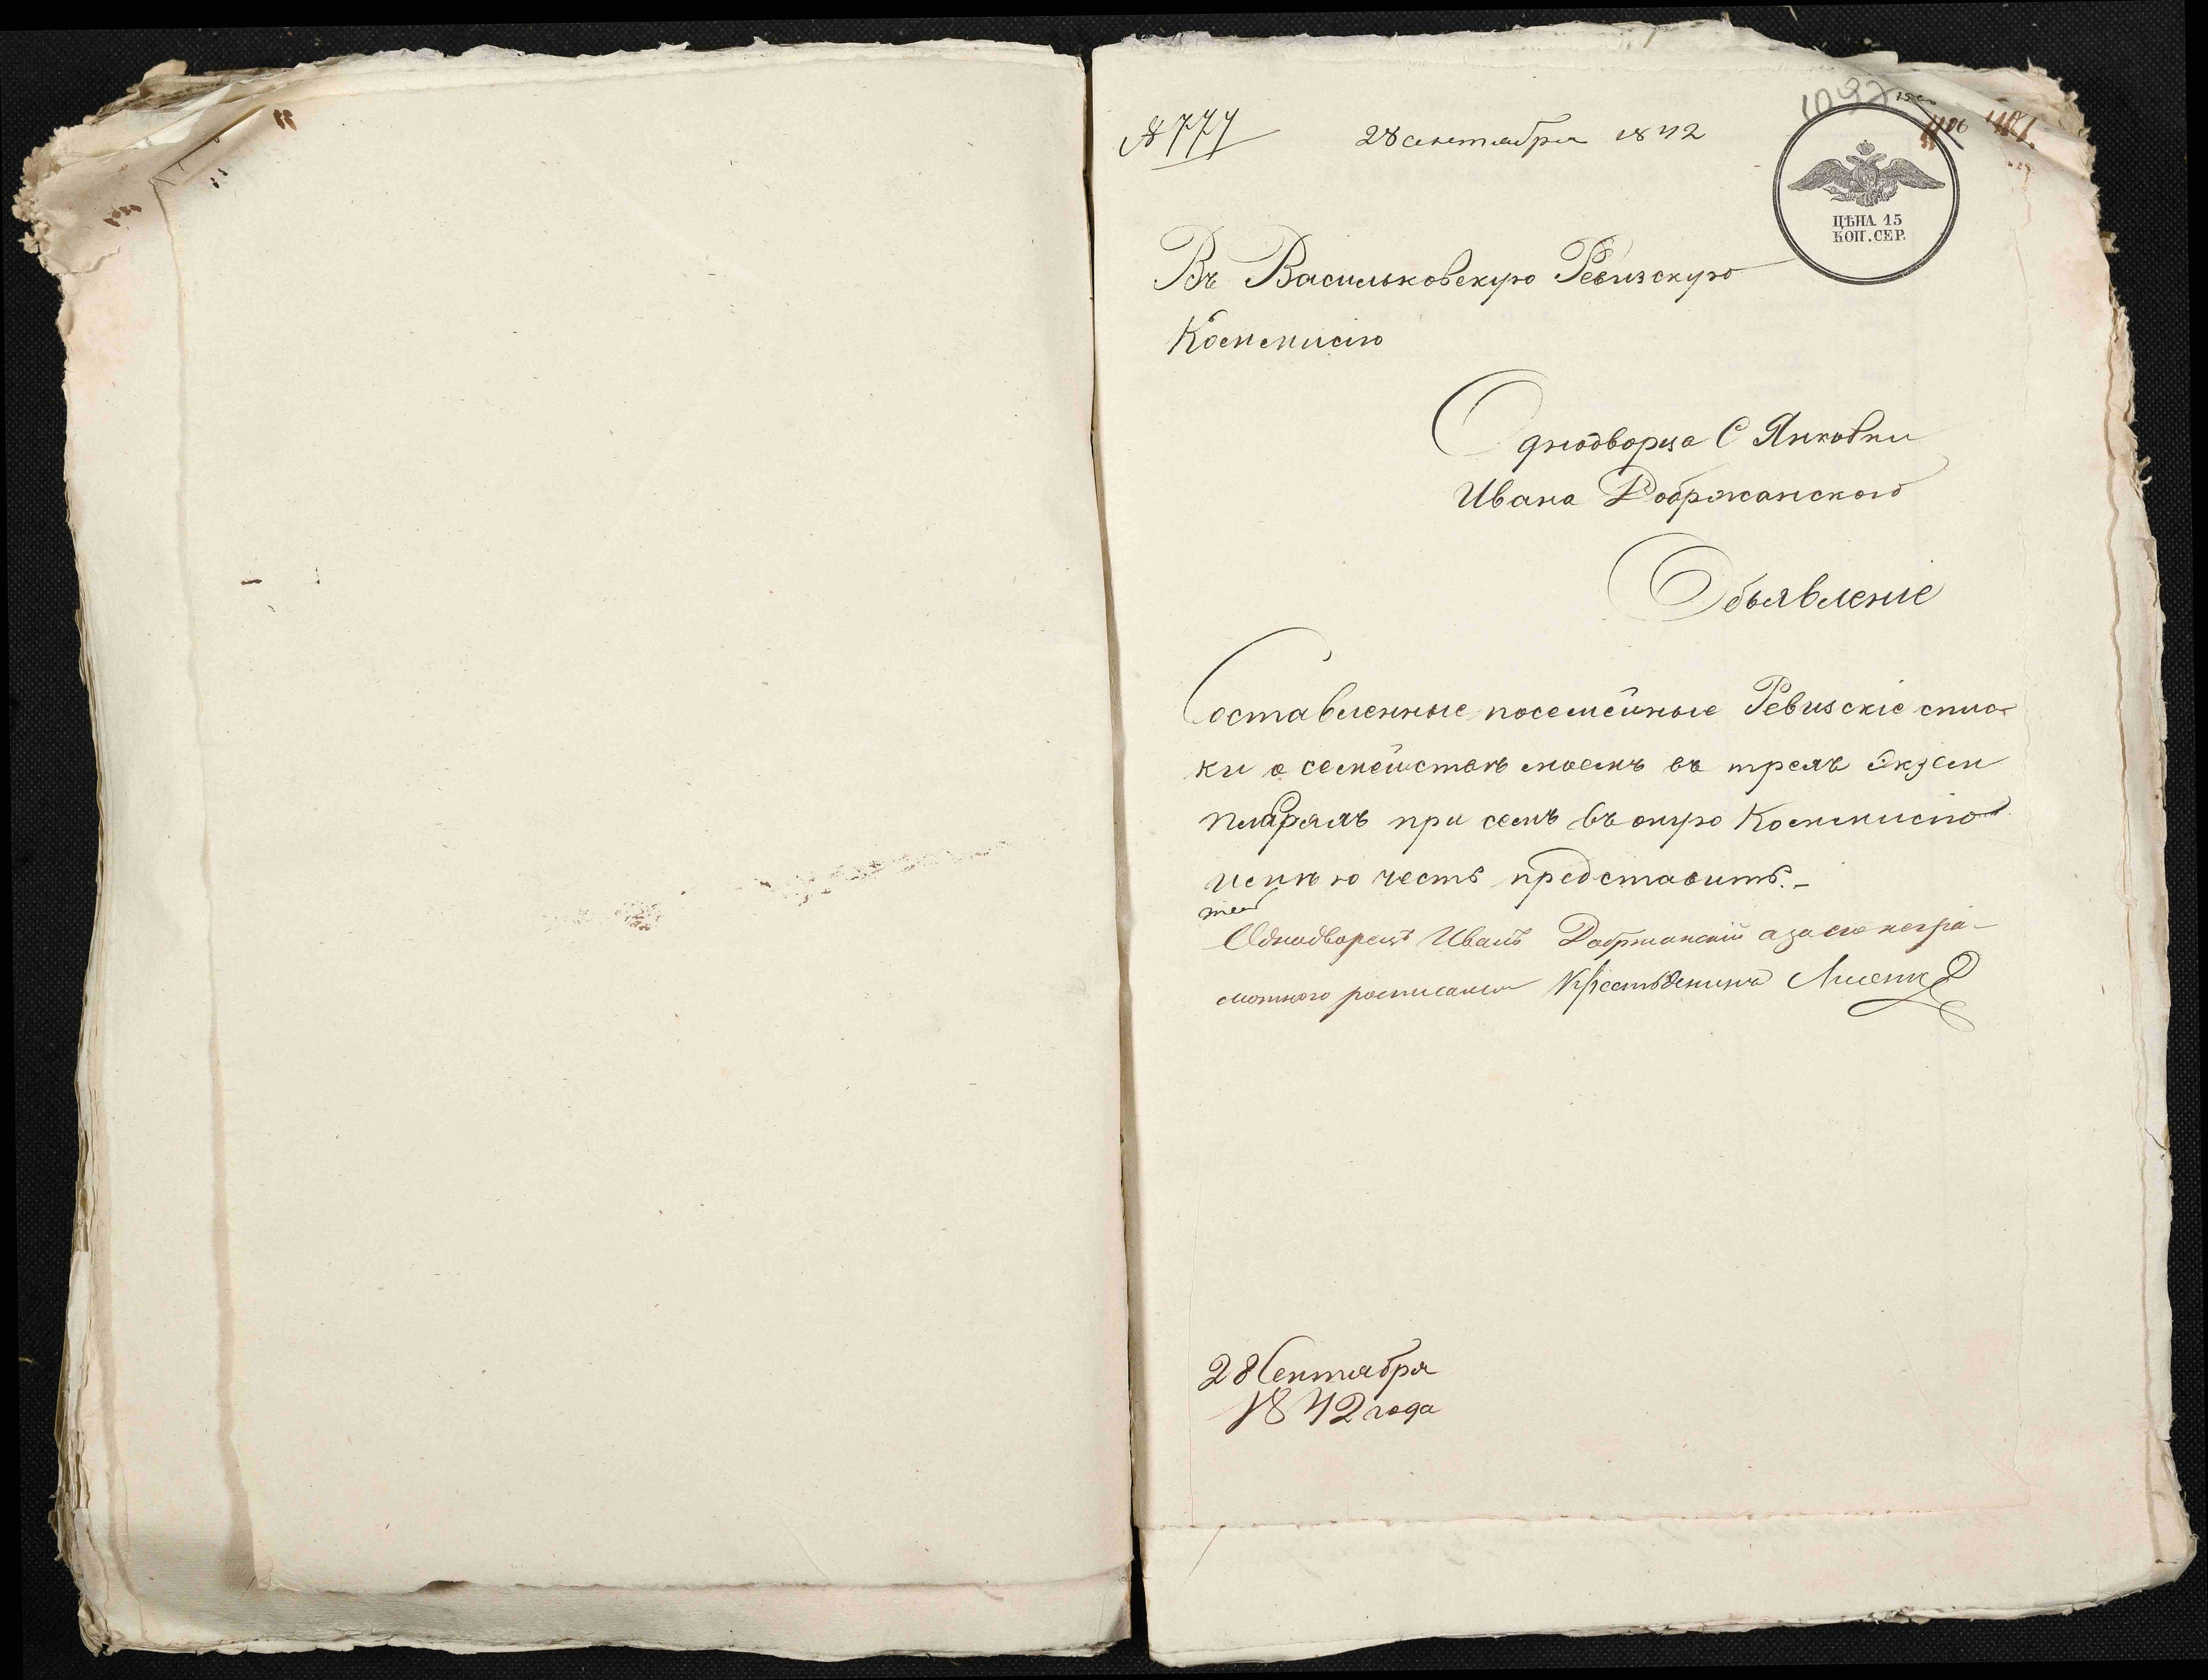 № 774
28 сентября 1842
1097
1106 1101
ЦѢНА 15
КОП. СЕР.
Въ Васильковскую Ревизскую
Коммисію
Однодворца С Янковки
Ивана Добржанского
Объявленіе
Составленные посемейные Ревизскіе спис
ки о семействѣ моемъ въ трехъ Екзем
плярахъ при семъ въ оную Коммисію
имѣю честь представить.-
Однодворецъ Иванъ Добржанскій а за его негра-
мотного росписался Крестьянинъ Лисенко
28 Сентября
1842 года